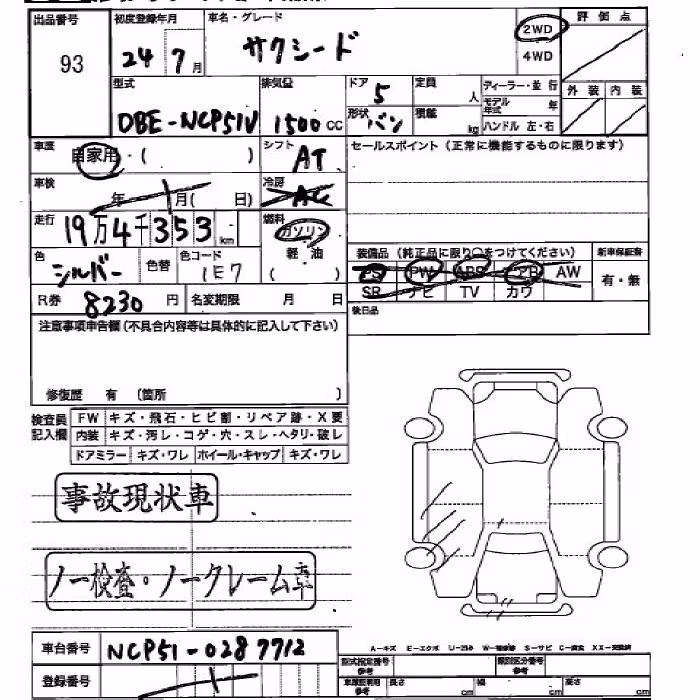 出品番号 初度登録年月 車名・グレード 評価点
93 24 7月 サクシード 2WD
4WD
外装 内装
型式 排気量 ドア 定員 ディーラー・並行
DBE-NCP51V 1500cc 5 人 モデル年式 年
形状 バン 積載 kg ハンドル 左・右
車歴 自家用・( ) シフト AT セールスポイント(正常に機能するものに限ります)
車検 年 月( 日) 冷房 AC
走行 19万4千353km 燃料 ガソリン
軽・油
( )
色 シルバー 色替 色コード 1E7
装備品(純正品に限り○をつけてください) 新車保証書
PS PW ABS エアB AW 有・無
SR ナビ TV カワ
R券 8230円 名変期限 月 日 後日品
注意事項申告欄(不具合内容等は具体的に記入して下さい)
修復歴 有 (箇所 )
検査員記入欄 FW キズ・飛石・ヒビ割・リペア跡・X要
内装 キズ・汚レ・コゲ・穴・スレ・ヘタリ・破レ
ドアミラー キズ・ワレ ホイール・キャップ キズ・ワレ
事故現状車
ノー検査・ノークレーム車
A-キズ E-エクボ
車台番号 NCP51-0287712
登録番号
型式指定番号 参考 類別区分番号 参考
長さ cm 幅 cm 高さ cm